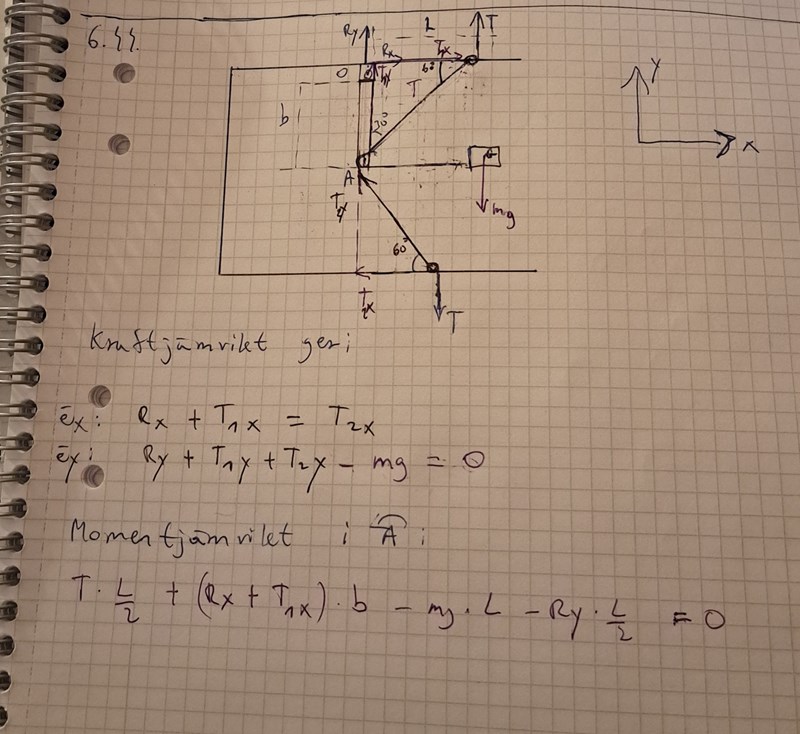 6.44.
Ry
L
T
Rx
T1x
60°
O
T1y
T
b
30°
Y
x
A
T2y
mg
60°
T2x
T
Kraftjämvikt ger:
ēx: Rx + T1x = T2x
ēy: Ry + T1y + T2y - mg = 0
Momentjämvikt i A:
T · L/2 + (Rx + T1x) · b - mg · L - Ry · L/2 = 0